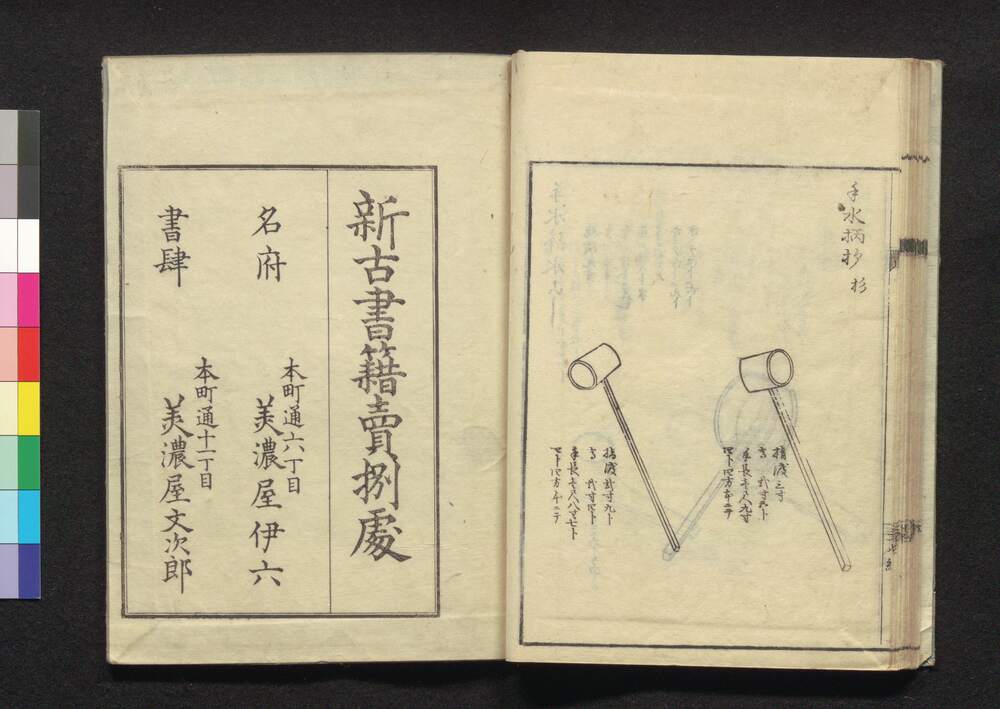 手水柄杓 杉
指渡三寸
高 弐寸五卜
柄長壱尺九寸
四卜四方本ニテ
指渡弐寸九卜
高 弐寸四卜
柄長壱尺八寸七卜
四卜四方本ニテ
新古書籍賣捌處
名府
本町通六丁目
美濃屋伊六
書肆
本町通十一丁目
美濃屋文次郎